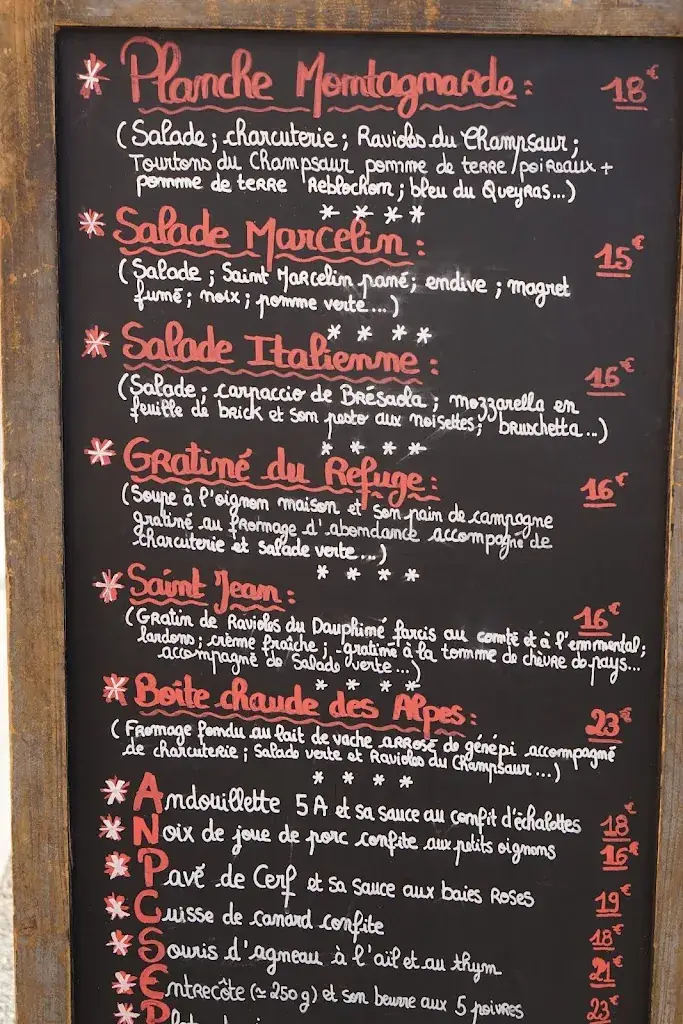 * Planche Montagnarde : 18€
(Salade ; charcuterie ; Ravioles du Champsaur ;
Tourtons du Champsaur pomme de terre/poireaux +
pomme de terre Reblochon ; bleu du Queyras...)
* * * *
* Salade Marcelin : 15€
(Salade ; Saint Marcelin pané ; endive ; magret
fumé ; noix ; pomme verte...)
* * * *
* Salade Italienne : 16€
(Salade ; carpaccio de Brésaola ; mozzarella en
feuille de brick et son pesto aux noisettes ; bruschetta...)
* * * *
* Gratiné du Refuge : 16€
(Soupe à l'oignon maison et son pain de campagne
gratiné au fromage d'abondance accompagné de
charcuterie et salade verte...)
* * * *
* Saint Jean : 16€
(Gratin de Ravioles du Dauphiné farcis au comté et à l'emmental ;
lardons ; crème fraîche ; gratiné à la tomme de chèvre de pays...
accompagné de Salade verte...)
* * * *
* Boite chaude des Alpes : 23€
(Fromage fondu au lait de vache arrosé de génépi accompagné
de charcuterie ; Salade verte et Ravioles du Champsaur...)
* * * *
* Andouillette 5A et sa sauce au confit d'échalottes 18€
* Noix de joue de porc confite aux petits oignons 16€
* Pavé de Cerf et sa sauce aux baies Roses 19€
* Cuisse de canard confite 18€
* Souris d'agneau à l'aïl et au thym 21€
* Entrecôte (≃ 250g) et son beurre aux 5 poivres 23€